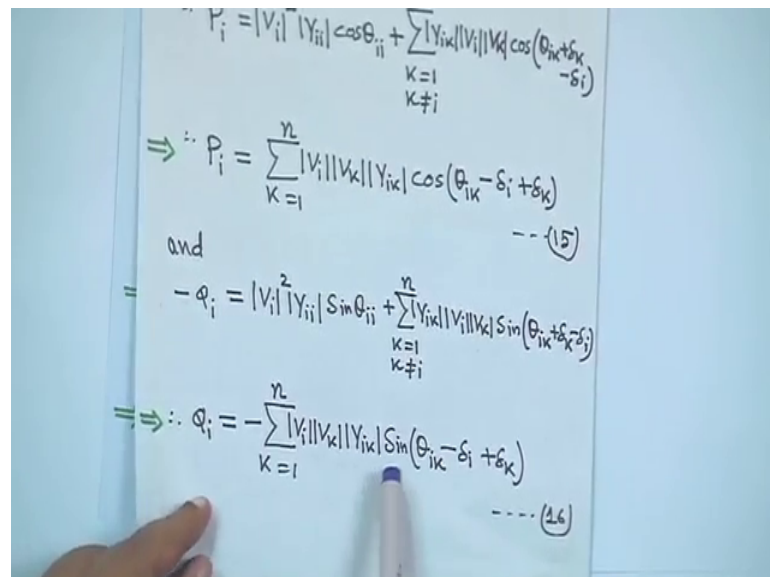 ∴ P_i = |V_i|² |Y_ii| cosθ_ii + ∑_{K=1, K≠i} |Y_ik||V_i||V_k| cos(θ_ik + δ_k − δ_i)
⇒ ∴ P_i = ∑_{K=1}^{n} |V_i||V_k||Y_ik| cos(θ_ik − δ_i + δ_k)
---(15)
and
= −Q_i = |V_i|² |Y_ii| Sinθ_ii + ∑_{K=1, K≠i}^{n} |Y_ik||V_i||V_k| Sin(θ_ik + δ_k − δ_i)
⇒⇒ ∴ Q_i = − ∑_{K=1}^{n} |V_i||V_k||Y_ik| Sin(θ_ik − δ_i + δ_k)
----(16)